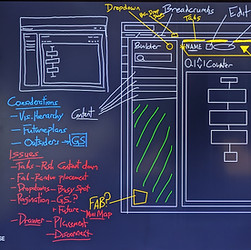 Dropdown
Breadcrumbs
Tabs
Edit
Builder
NAME
Q1 | Counter
Considerations
- Vis. Hierarchy
- Future plans
- Outsiders → GS
Content
Issues
- Tabs - Push Content down
- Fab - Relative placement
- Dropdowns - Busy Spot
- Pagination - GS?
+ Future
Mini Map
- Drawer - Placement
- Disconnect
FAB?